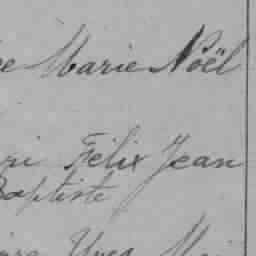 e Marie Noël
ri Félix Jean
Baptiste
Yves